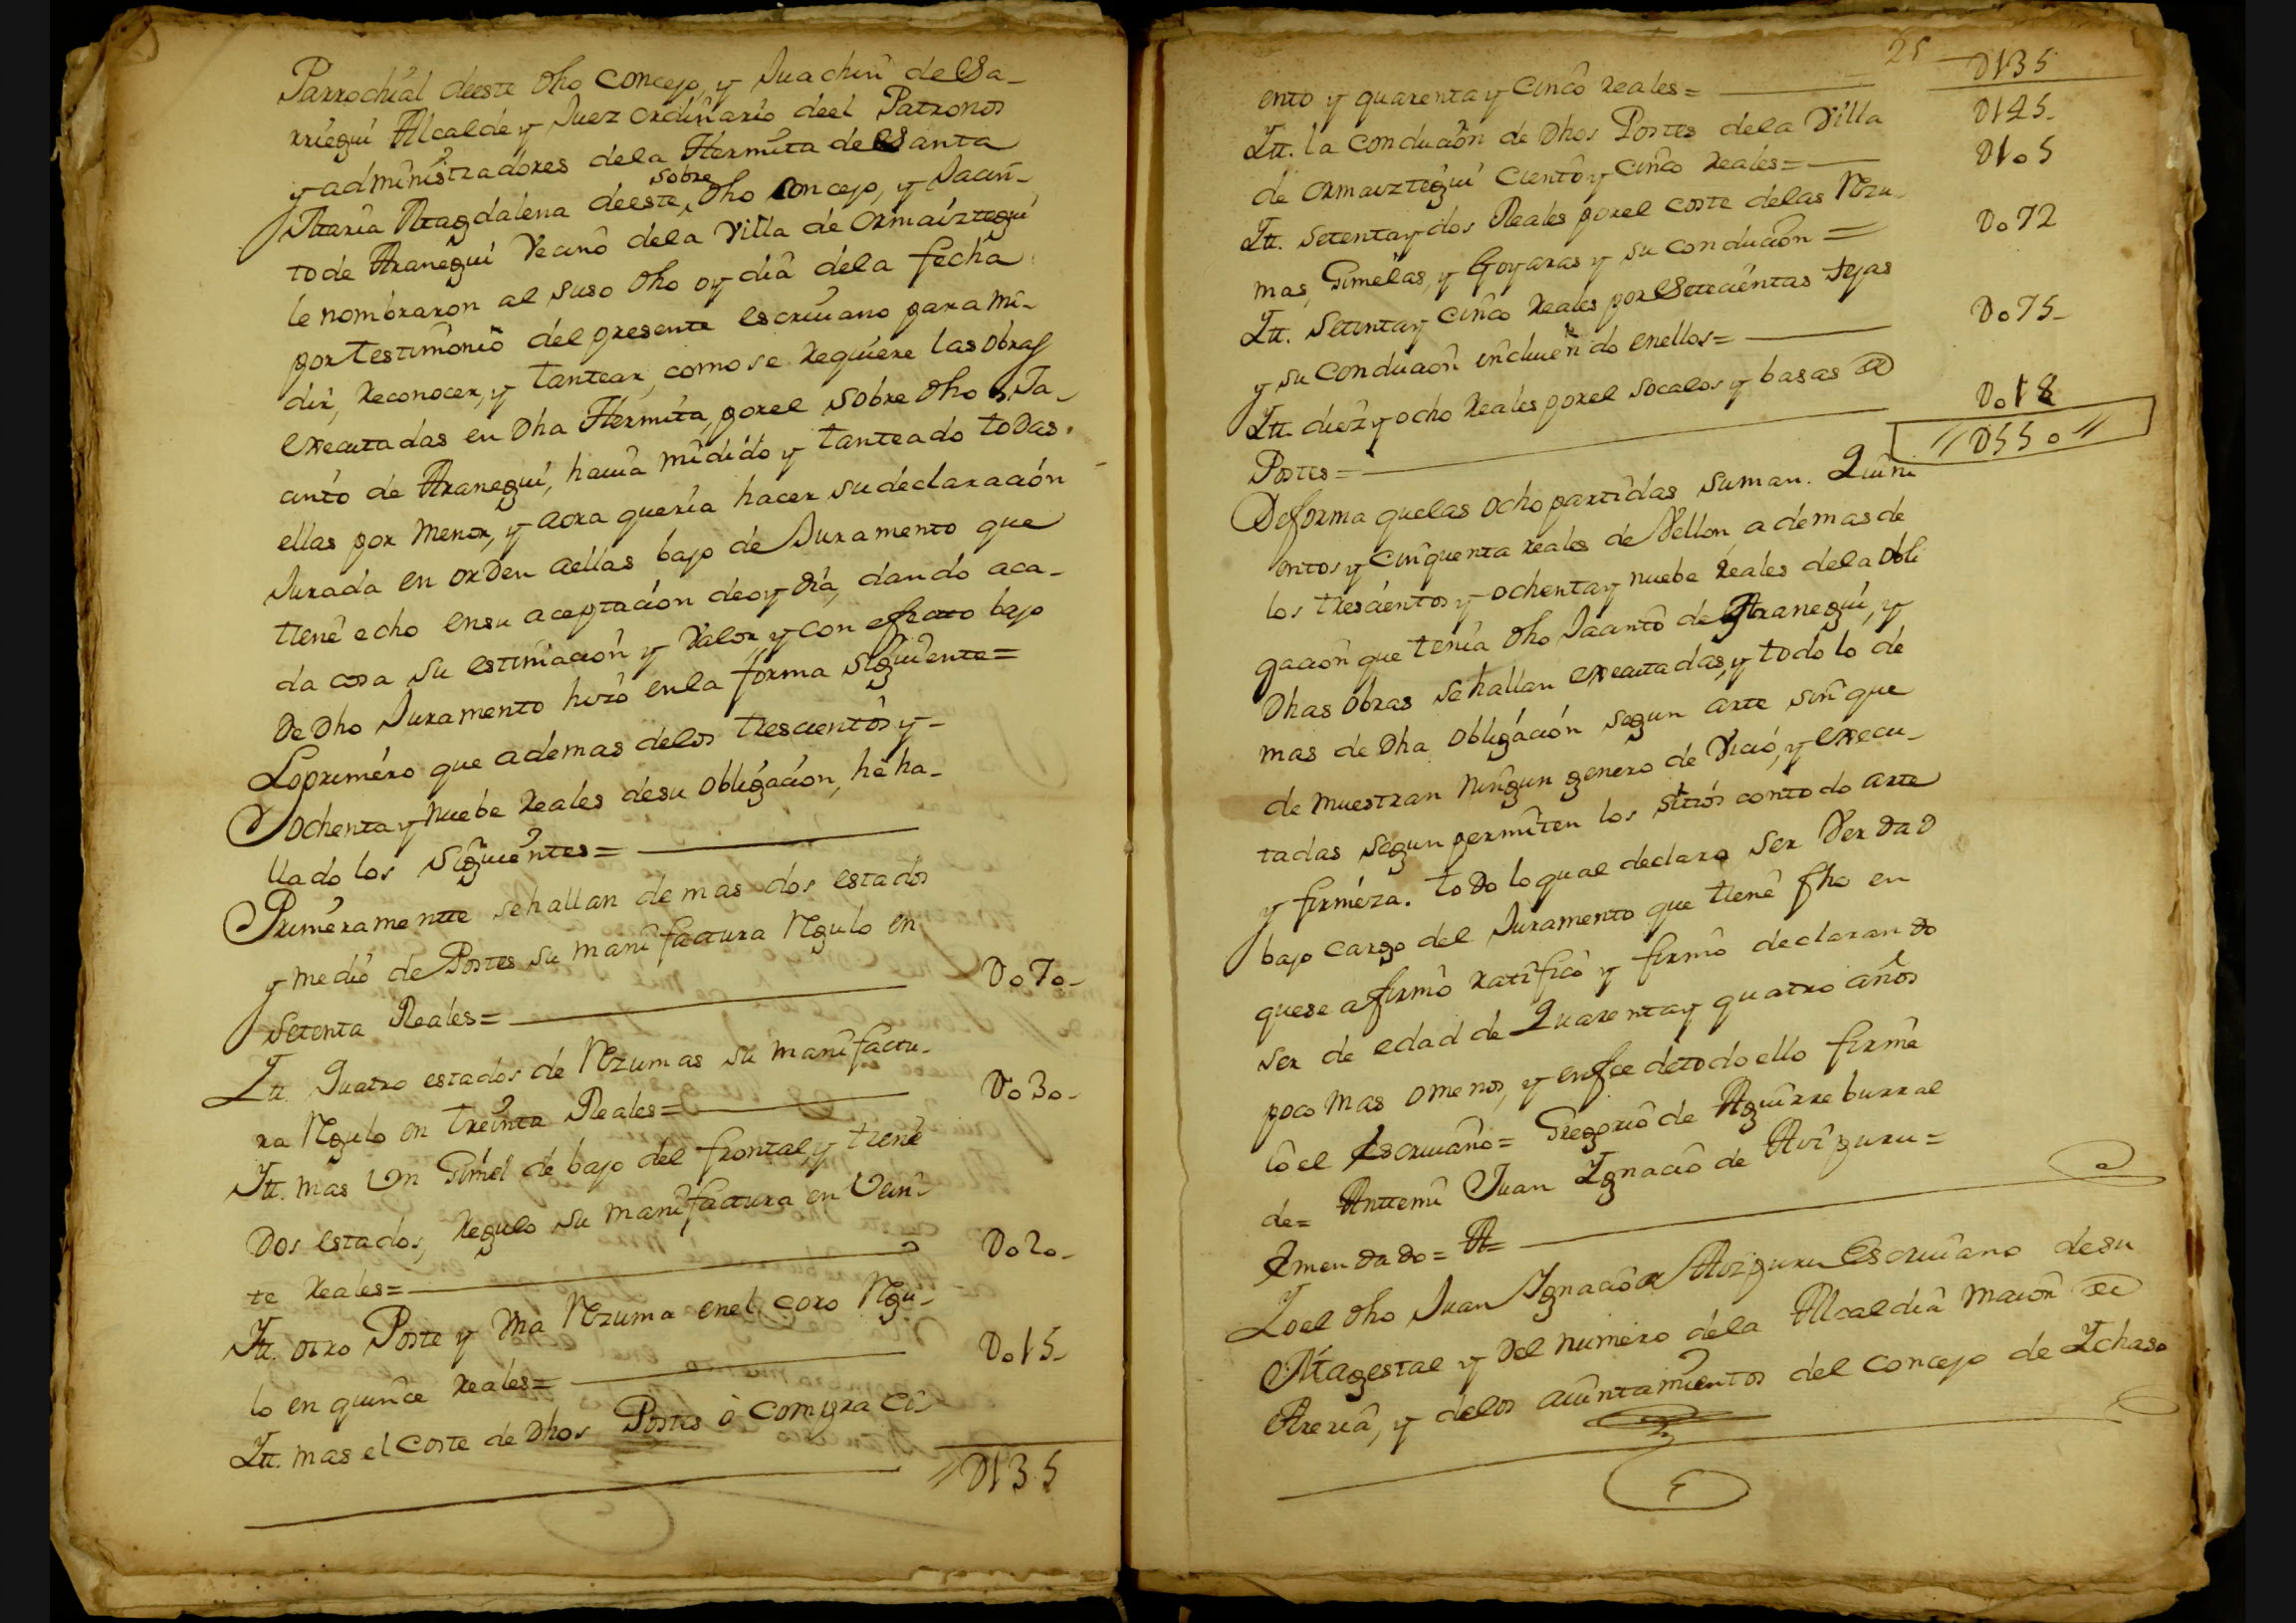 Parrochial deeste dho Concejo, y Juachin de Sa-
rriegui Alcalde y Juez ordinario deel Patronos
y administradores dela Hermita de Santa
Maria Magdalena deeste sobre dho concejo, y Jacin-
to de Aranegui Vecino dela Villa de Ormaiztegui
le nombraron al suso dho oy dia dela fecha
por testimonio del presente escriuano para mi-
dir, Reconocer, y tantear, como se Requiere las obras
executadas en dha Hermita, por el sobre dho Ja-
cinto de Aranegui, hauia midido y tanteado todas
ellas por menor, y aora queria hacer su declaracion
Jurada en orden aellas bajo de Juramento que
tiene echo ensu aceptacion deoy dia, dando aca-
da cosa su estimacion y Valor, y con efecto bajo
de dho Juramento hizo enla forma siguiente=
Loprimero que ademas delos trescientos y-
ochenta y nuebe Reales desu obligacion, he ha-
llado los siguientes=
Primeramente se hallan demas dos estados
y medio de Postes su manifactura Regulo en
setenta Reales= D070-
Itt. Quatro estados de Rezumas su manifactu-
ra Regulo en treinta Reales= D030-
Itt. mas Un Gimel de bajo del frontal, y tiene
dos estados, Regulo su manifactura en Vein-
te Reales= D020-
Itt. otro Poste y Una Rezuma enel coro Regu-
lo en quince Reales= D015-
Itt. mas el coste de dhos Postes o compra ci-
D135
25 D135
ento y quarenta y cinco Reales= D145-
Itt. la conducion de dhos Postes dela Villa
de Ormaiztegui ciento y cinco Reales= D105
Itt. setenta y dos Reales por el coste delas Rezu-
mas, Gimelas, y Goyaras y su conducion = D072
Itt. setenta y cinco Reales por setecientas tejas
y su conducion incluiendo enellos= D075-
Itt. diez y ocho Reales por el socalos y basas de
Postes= D018
D550
De forma quelas ocho partidas suman. Quini
entos y cinquenta reales de Vellon ademas de
los trescientos y ochenta y nuebe Reales dela obli
gacion que tenia dho Jacinto de Aranegui, y
dhas obras se hallan executadas, y todo lo de
mas de dha obligacion segun arte sin que
de muestran ningun genero de Vicio, y execu-
tadas segun permiten los sitios con todo arte
y firmeza. todo lo qual declaro ser Verdad
bajo cargo del Juramento que tiene fho en
que se afirmo ratifico y firmo declarando
ser de edad de Quarenta y quatro años
poco mas o menos, y enfee detodo ello firme
io el Escriuano= Gregorio de Aguirreburral
de= Antemi Juan Ignacio de Aizpuru=
Emendado= A=
Io el dho Juan Ignacio de Aizpuru Escriuano desu
Magestal y del numero dela Alcaldia maior de
Areria, y delos aiuntamientos del concejo de Ichaso